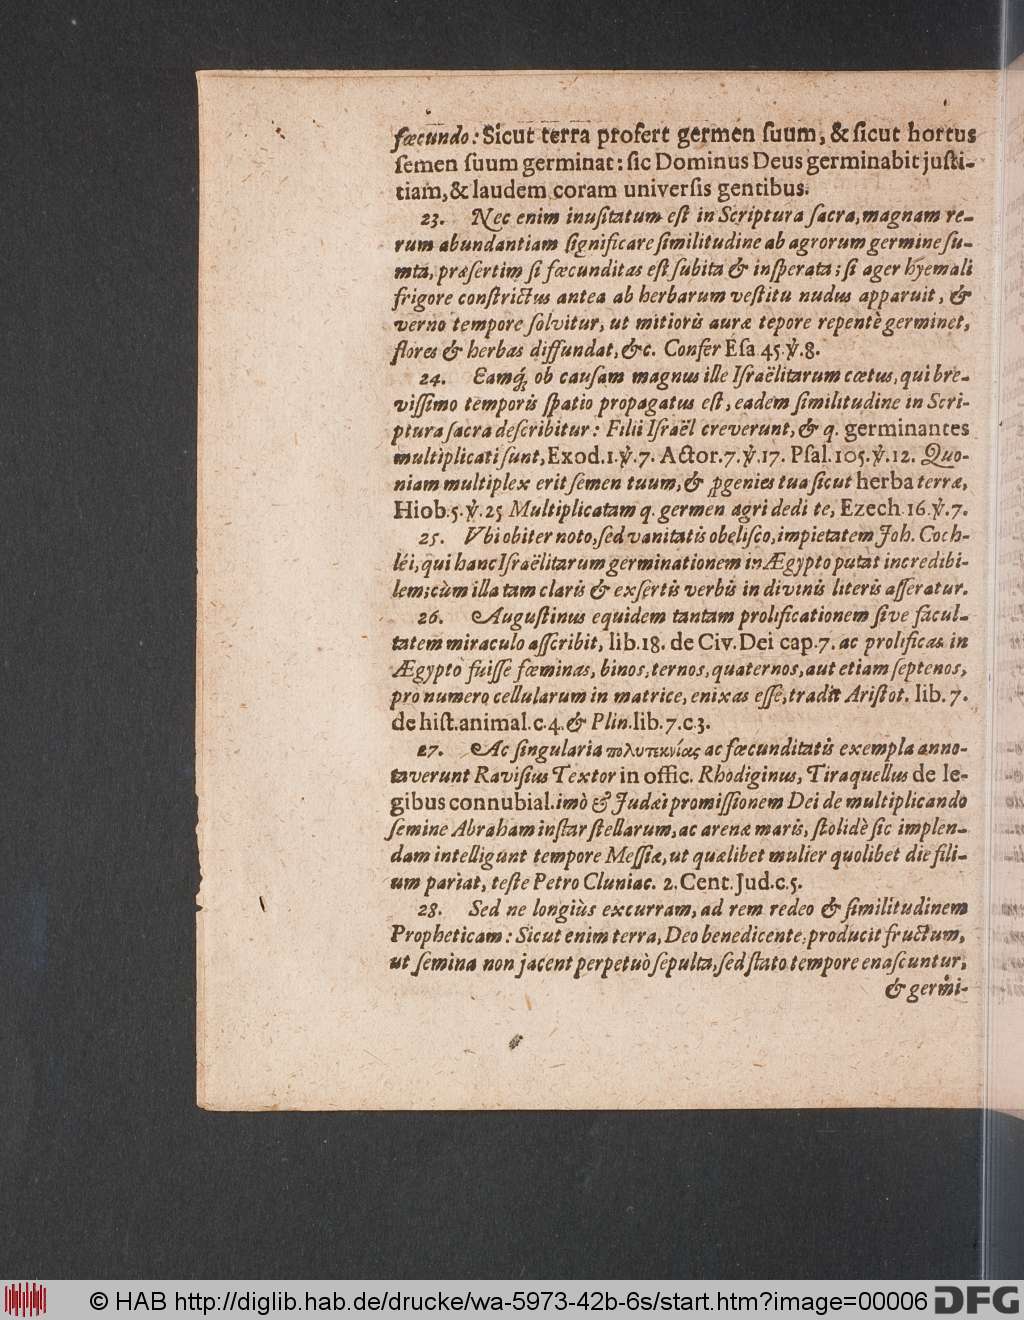 fœcundo: Sicut terra profert germen ſuum, & ſicut hortus
ſemen ſuum germinat: ſic Dominus Deus germinabit juſti-
tiam, & laudem coram univerſis gentibus.
23. Nec enim inuſitatum eſt in Scriptura ſacra, magnam re-
rum abundantiam ſignificare ſimilitudine ab agrorum germine ſu-
mta, præſertim ſi fœcunditas eſt ſubita & inſperata; ſi ager hyemali
frigore conſtrictus antea ab herbarum veſtitu nudus apparuit, &
verno tempore ſolvitur, ut mitioris auræ tepore repentè germinet,
flores & herbas diffundat, &c. Confer Eſa 45. ℣. 8.
24. Eamq́; ob cauſam magnus ille Iſraëlitarum cœtus, qui bre-
viſſimo temporis ſpatio propagatus eſt, eadem ſimilitudine in Scri-
ptura ſacra deſcribitur: Filii Iſraël creverunt, & q. germinantes
multiplicati ſunt, Exod. 1. ℣. 7. Actor. 7. ℣. 17. Pſal. 105. ℣. 12. Quo-
niam multiplex erit ſemen tuum, & ꝓgenies tua ſicut herba terræ,
Hiob. 5. ℣. 25 Multiplicatam q. germen agri dedi te, Ezech. 16. ℣. 7.
25. Vbi obiter noto, ſed vanitatis obeliſco, impietatem Joh. Coch-
léi, qui hanc Iſraëlitarum germinationem in Ægypto putat incredibi-
lem; cùm illa tam claris & exſertis verbis in divinis literis aſſeratur.
26. Auguſtinus equidem tantam prolificationem ſive facul-
tatem miraculo aſſcribit, lib. 18. de Civ. Dei cap. 7. ac prolificas in
Ægypto fuiſſe fœminas, binos, ternos, quaternos, aut etiam ſeptenos,
pro numero cellularum in matrice, enixas eſſe, tradit Ariſtot. lib. 7.
de hiſt. animal. c. 4. & Plin. lib. 7. c. 3.
27. Ac ſingularia πολυτεκνίας ac fœcunditatis exempla anno-
taverunt Raviſius Textor in offic. Rhodiginus, Tiraquellus de le-
gibus connubial. imò & Judæi promiſſionem Dei de multiplicando
ſemine Abraham inſtar ſtellarum, ac arenæ maris, ſtolidè ſic implen-
dam intelligunt tempore Meſſiæ, ut quælibet mulier quolibet die fili-
um pariat, teſte Petro Cluniac. 2. Cent. Jud. c. 5.
28. Sed ne longiùs excurram, ad rem redeo & ſimilitudinem
Propheticam: Sicut enim terra, Deo benedicente, producit fructum,
ut ſemina non jacent perpetuò ſepulta, ſed ſtato tempore enaſcuntur,
& germi-
© HAB http://diglib.hab.de/drucke/wa-5973-42b-6s/start.htm?image=00006
DFG